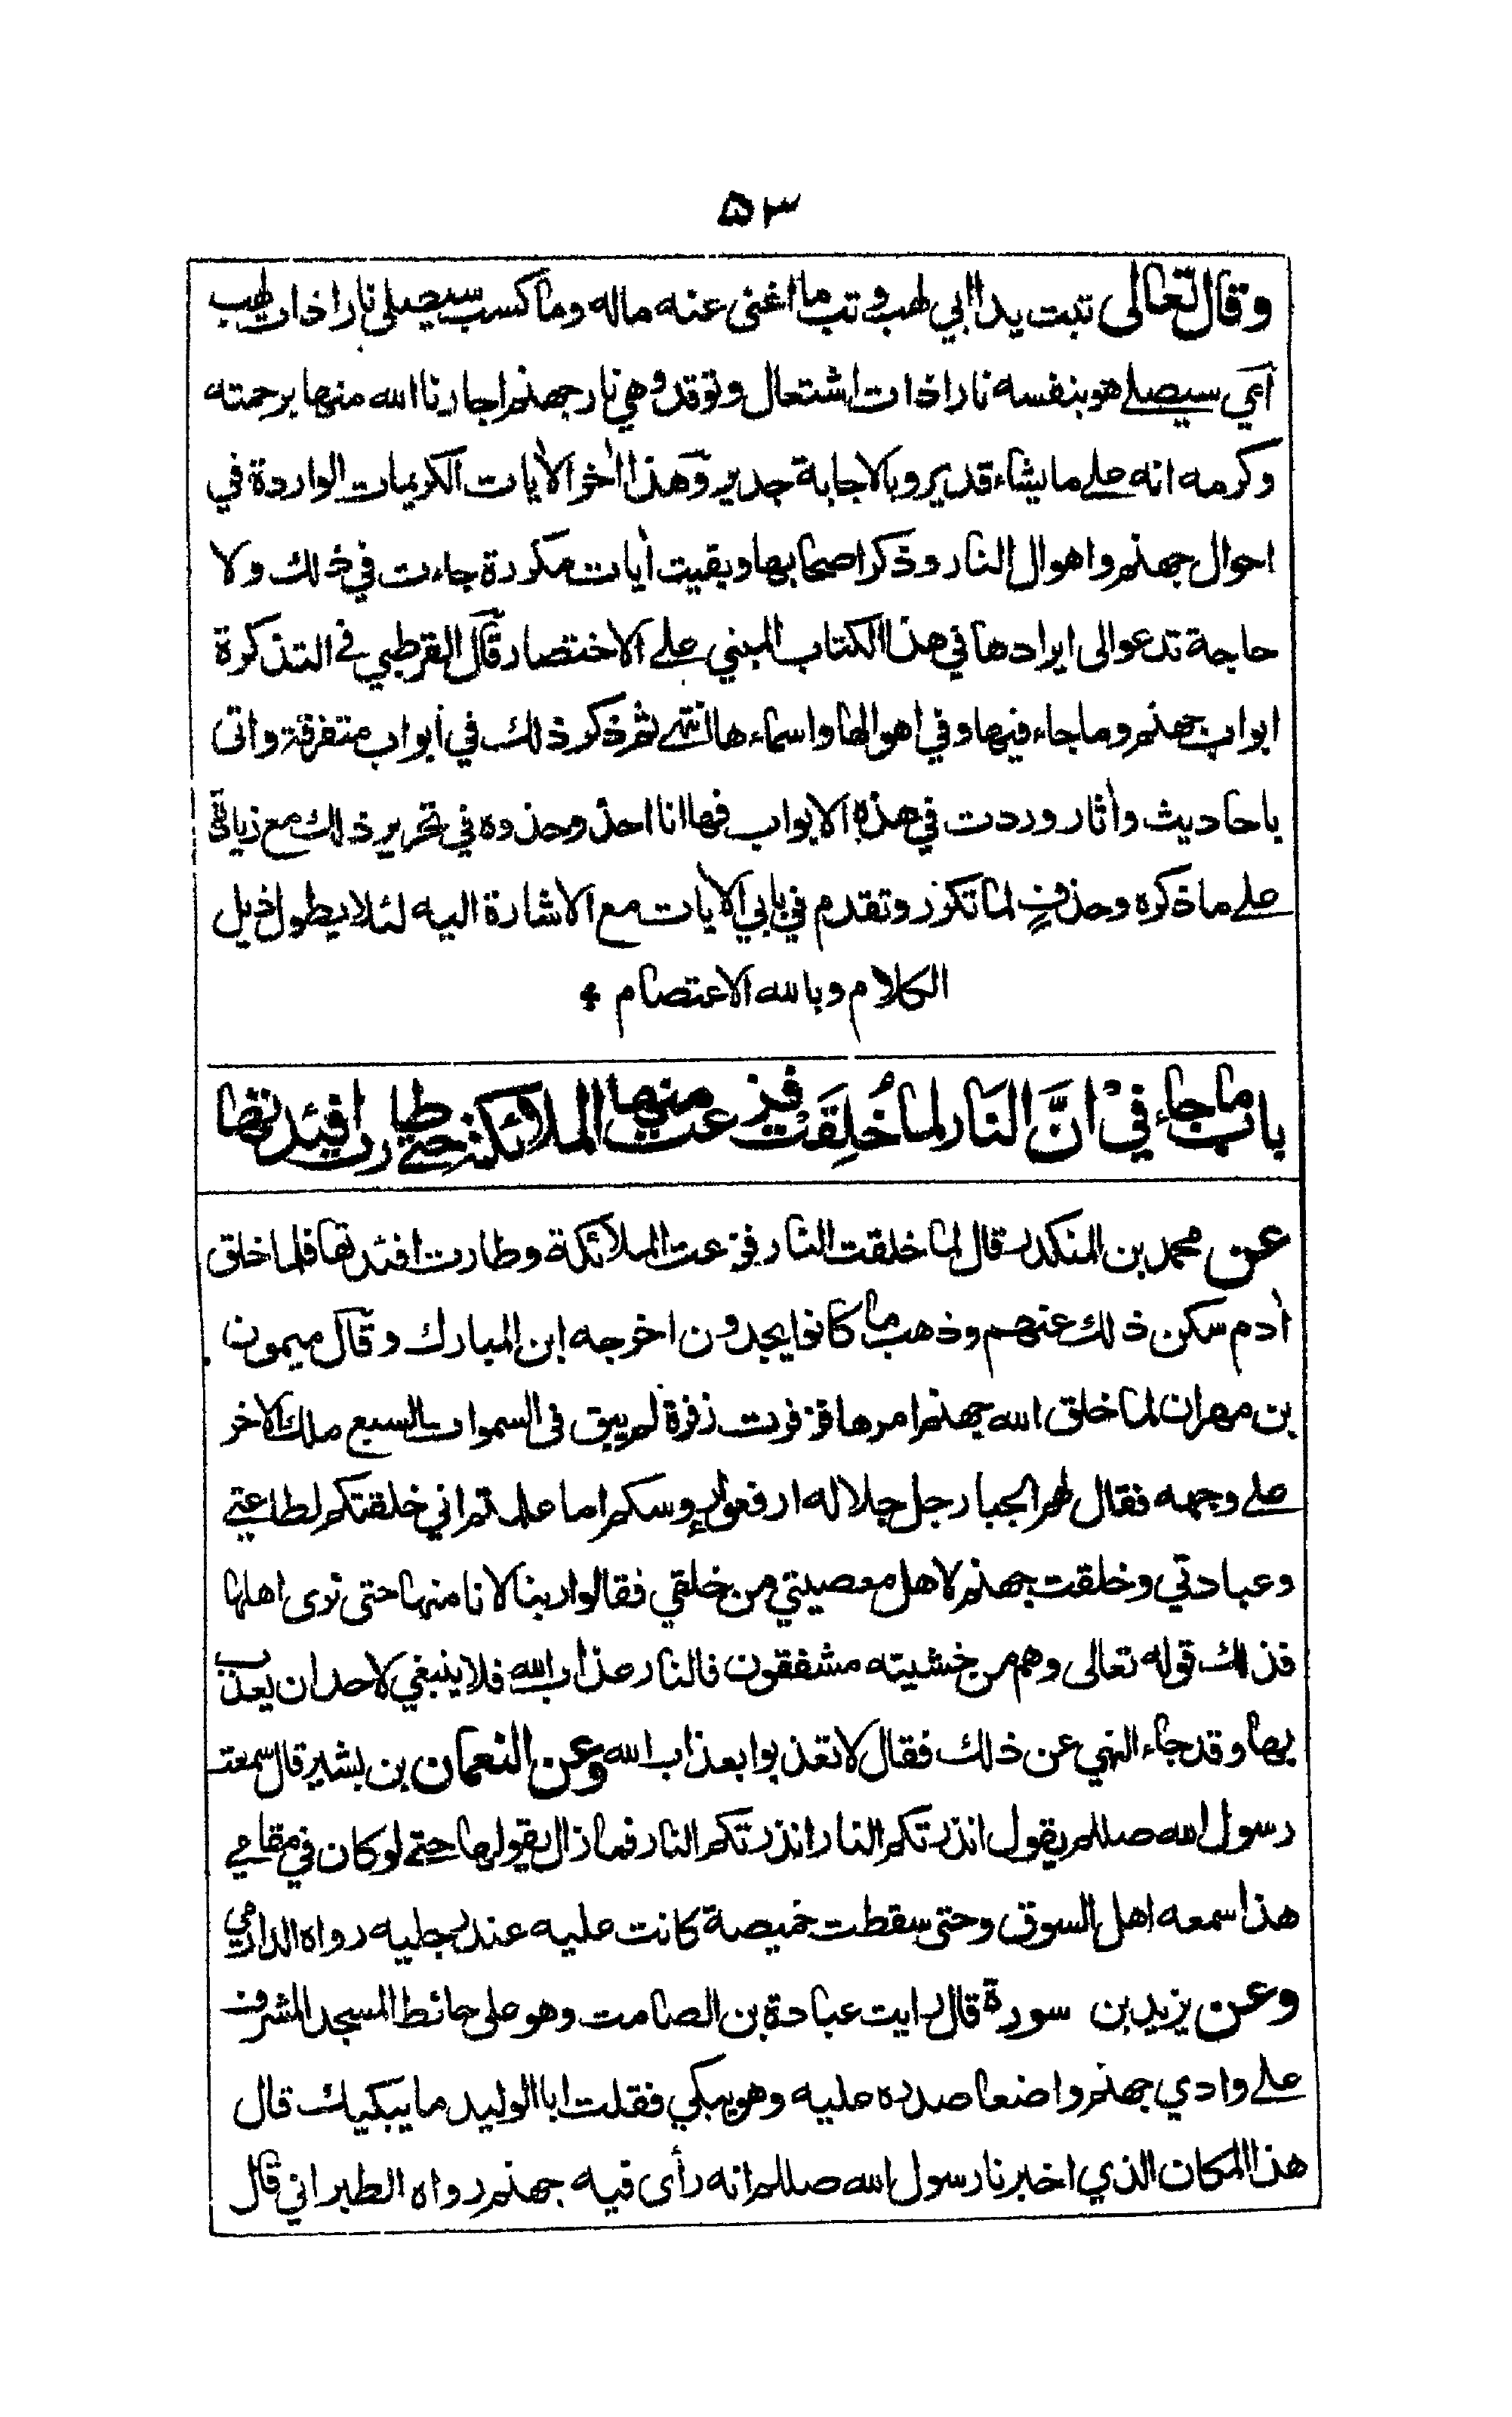 ٥٣
وقال تعالى تبت يدا ابي لهب وتب ما اغنى عنه ماله وما كسب سيصلى نارا ذات لهب
اي سيصلے هو بنفسه نارا ذات اشتعال وتوقد وهي نار جهنم اجارنا الله منها برحمته
وكرمه انه علے ما يشاء قدير وبالاجابة جدير وهذا اخر الأيات الكريمات الواردة في
احوال جهنم واهوال النار وذكر اصحابها وبقيت أيات مكررة جاءت في ذلك ولا
حاجة تدعو الى ايرادها في هذا الكتاب المبني علے الاختصار قال القرطبي في التذكرة
ابواب جهنم وما جاء فيها وفي اهوالها واسماءها انتهى ثم ذكر ذلك في أبواب متفرقة واتى
باحاديث وأثار وردت في هذه الابواب فها انا احذو حذوه في تحرير ذلك مع زيادة
علے ما ذكره وحذفٍ لما تكرر وتقدم في بابي الأيات مع الاشارة اليه لئلا يطول ذيل
الكلام وبالله الاعتصام
باب ما جاء في انَّ النَار لما خُلِقَتْ فزعت منها الملائكة حتے طارت افئدتها
عن محمد بن المنكدر قال لما خلقت النار فزعت الملائكة وطارت افئدتها فلما خلق
أدم سكن ذلك عنهم وذهب ما كانوا يجدون اخرجه ابن المبارك وقال ميمون
بن مهران لما خلق الله جهنم امرها فزفرت زفرة لم يبق فى السموات السبع ملك الاخر
علے وجهه فقال لهم الجبار جل جلاله ارفعوا رؤسكم اما علمتم اني خلقتكم لطاعتي
وعبادتي وخلقت جهنم لاهل معصيتي من خلقي فقالوا ربنا لانامنها حتى نرى اهلها
فذلك قوله تعالى وهم من خشيته مشفقون فالنار عذاب الله فلا ينبغي لاحد ان يعذب
بها وقد جاء النهي عن ذلك فقال لا تعذبوا بعذاب الله وعن النعمان بن بشير قال سمعت
رسول الله صللم يقول انذرتكم النار انذرتكم النار فما زال يقولها حتے لو كان في مقامي
هذا سمعه اهل السوق وحتى سقطت خميصة كانت عليه عند رجليه رواه الدارمي
وعن يزيد بن سورة قال رايت عبادة بن الصامت وهو على حائط المسجد المشرف
علے وادي جهنم واضعا صدره عليه وهو يبكي فقلت ابا الوليد ما يبكيك قال
هذا المكان الذي اخبرنا رسول الله صللم انه رأى فيه جهنم رواه الطبراني قال